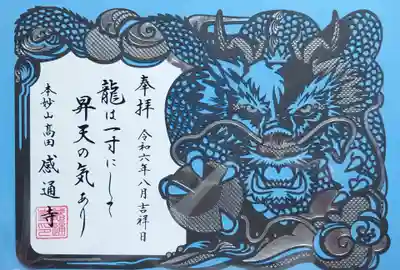 奉拝 令和六年八月吉祥日
龍は一寸にして
昇天の気あり
本妙山高田 感通寺